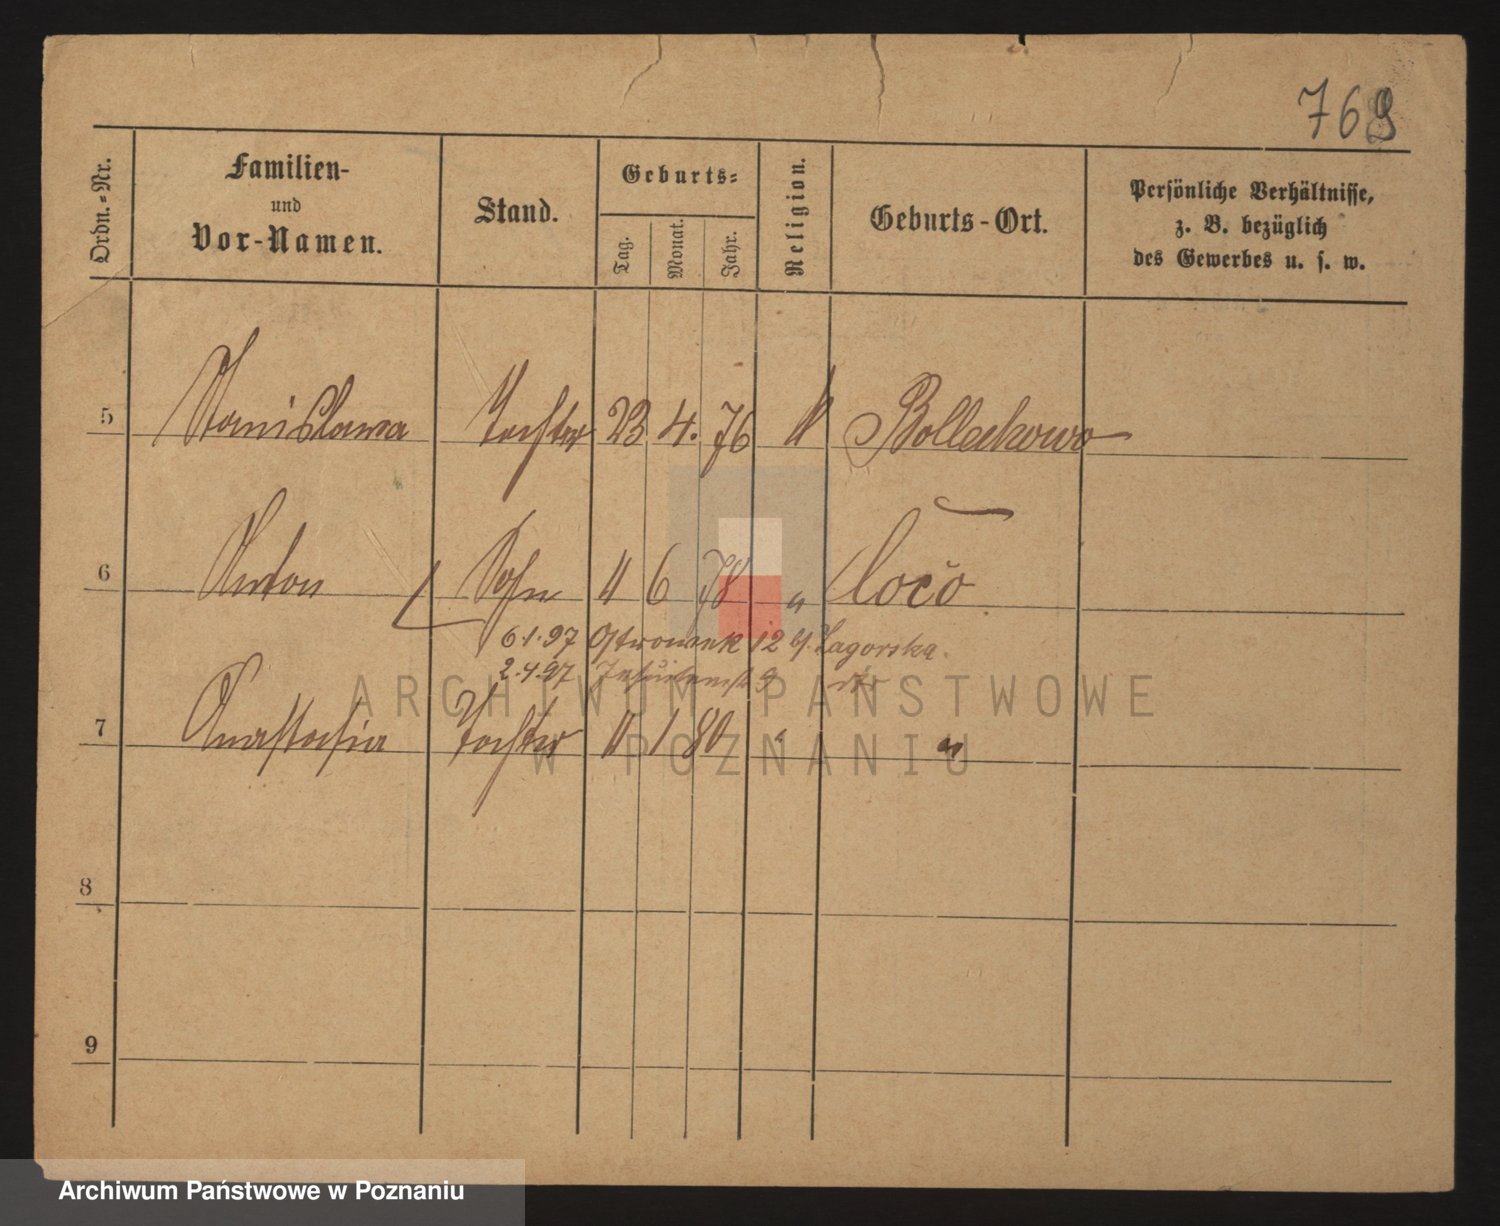 768
Ordn.-Nr. Familien- und Vor-Namen. Stand. Geburts- Tag. Monat. Jahr. Religion. Geburts-Ort. Persönliche Verhältnisse, z. B. bezüglich des Gewerbes u. s. w.
5 Stanislawa Tochter 23 4. 76 k Bollechowo
6 Anton Sohn 4 6 78 " loco
6.1.97 Ostrowek 12 b/. Zagorska.
2.4.97 9 dto
7 Anastasia Tochter 11 1 80 " "
8
9
ARCHIWUM PAŃSTWOWE
W POZNANIU
Archiwum Państwowe w Poznaniu